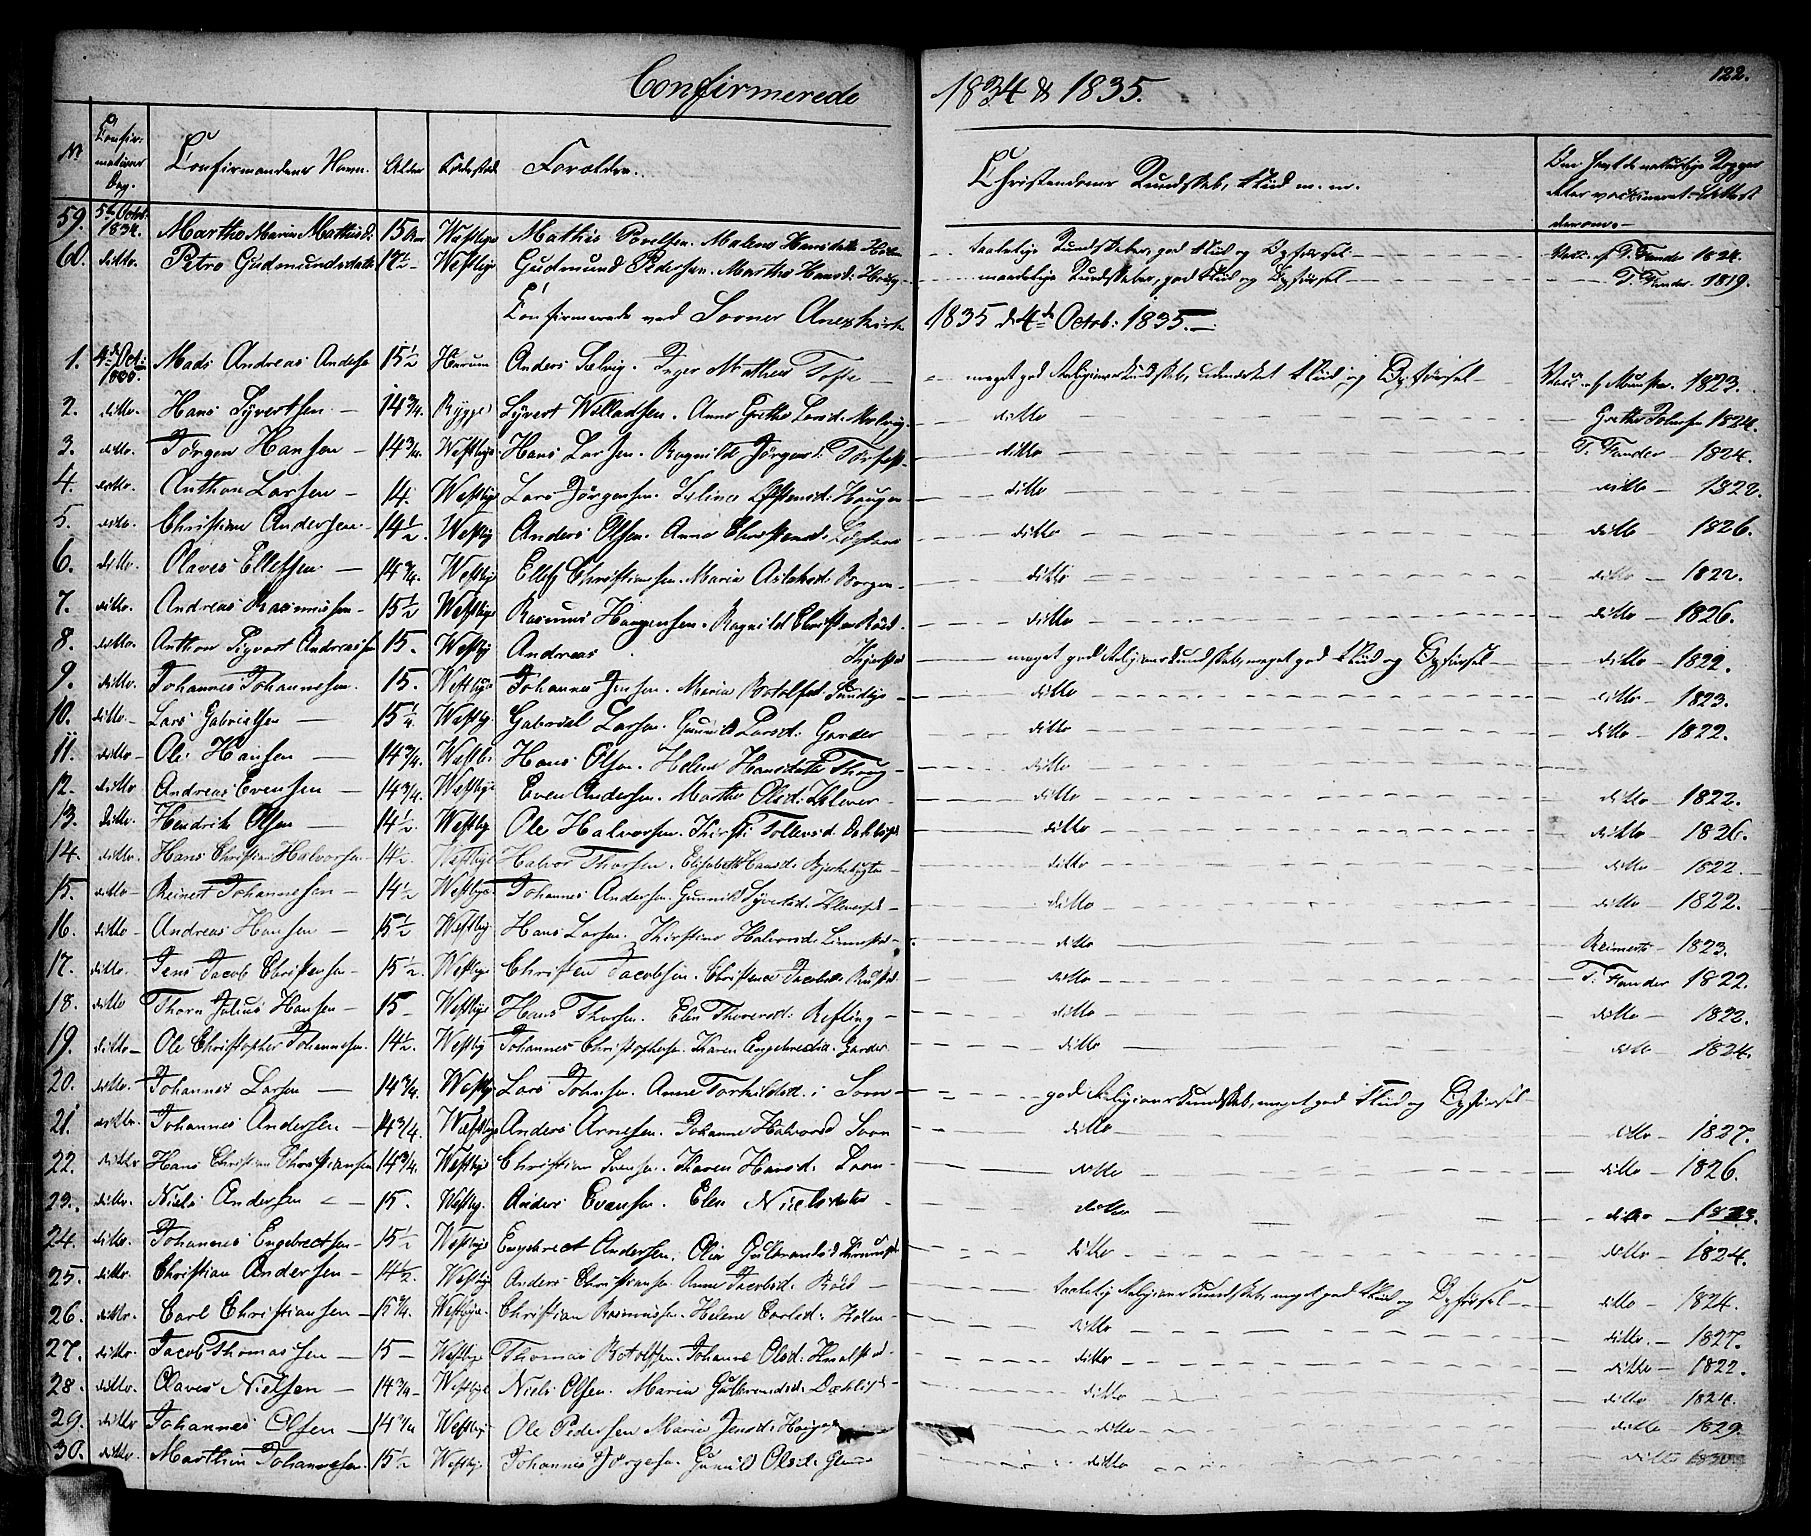 Confirmerede 1834 & 1835.
122.
No Confirmations Dag. Confirmandens Navn. Alder Fødested Forældre. Christendoms Kundskab, Flid m. m. Om havt de naturlige Kopper eller vaccineret. Attest derom.
59. 5te Octbr. 1834. Marthe Marie Mathisd: 15 Aar Westbye Mathis Povelsen. Malene Hansdatter taalelige Kundskaber, god Flid og Opførsel Vacc: af T. Fander 1824.
60. ditto. Petro Gudmundsdatter 17½ Westbye Gudmund Pedersen. Marthe Hansd: Houg maadelige Kundskaber, god Flid og Opførsel T. Fander 1819.
Confirmerede ved Sooner Anexkirke 1835 d 4de Octob: 1835.
1. 4de Oct: Mads Andreas Anderse 15½ Hurum Anders Selvig. Inger Mathea Tofte meget god Religionskundskab, udmærket Flid og Opførsel 1823.
2. ditto. Hans Syvertsen 14¾ Rygge Syvert Willadsen. Anne Grethe Larsd: ditto Grethe 1824.
3. ditto. Jörgen Hansen 14¾ Westbye Hans Larsen. Ragnild Jörgensd: ditto T. Fander 1824.
4. ditto. Anthon Larsen 14. Westbye Lars Jörgensen. Haugen ditto ditto 1822.
5. ditto. Christian Andersen 14½ Westby Anders Olsen. Anne Christensd: ditto ditto 1826.
6. ditto. Olaves Ellefsen 14¾. Westbye Ellef Christiansen. Maria Aslaksd: Borgen ditto ditto 1822.
7. ditto. Andreas Rasmussen 15½ Westbye Rasmus Haagensen. Ragnild Christ: Röed. ditto ditto 1826.
8. ditto. Anthon Sigvart Andreassen 15. Westby Andreas meget god Religionskundskab, meget god Flid og Opførsel ditto 1822.
9. ditto. Johannes Johannesen. 15. Westbye Johannes Jensen. Maria Botolfsd: Sundbye ditto ditto 1823.
10. ditto Lars Gabrielsen 15¼ Westby. Gabriel Larsen. Gunild Larsd: Garder ditto ditto 1822.
11. ditto Ole Hansen 14¾. Westbi. Hans Olsen. Helene Hansdatter ditto
12. ditto Andreas Evensen 14¾. Westbye Even Andersen. Marthe Olsd: Klever ditto ditto 1822.
13. Ditto. Hendrik Olsen 14½ Westbye Ole Halvorsen. Kirsti Tollevsd: ditto ditto 1826.
14. ditto. Hans Christian Halvorsen 14½. Westbye Halvor Thorsen. Elisabeth Hansd: ditto ditto 1822.
15. ditto Reinert Johannesen 14½ Westbye Johannes Andersen. Gunnild Syvertsd: ditto ditto 1822.
16. ditto Andreas Hansen 15½ Westby Hans Larsen. Kirstine Halvorsd: ditto Reinerts 1823.
17. ditto. Jens Jacob Christensen 15½. Westbye Christen Jacobsen. Christence Jacobsd: ditto T. Fander 1822.
18. ditto Thorn Julius Hansen 15 Westbye Hans Thorsen. Elen Thoresd: Refling ditto ditto 1822.
19. ditto Ole Christopher Johannesen. 14½. Westby Johannes Christophersen. Karen Engebretsd: Garder ditto ditto 1824.
20. ditto. Johannes Larsen 14¾. Westby Lars Johnsen. Anne Torkildsd: i Soon god Religionskundskab, meget god Flid og Opførsel
21. ditto. Johannes Andersen 14¾. Westbye Anders Arnesen. Johanne Halvorsd Soon ditto ditto 1827.
22. ditto Hans Christian Christiansen 14¾. Westbye Christian Svensen. Karen Hansd: Soon ditto ditto 1826.
23. ditto. Niels Andersen 15. Westby. Anders Evensen. Elen Nielsdatter ditto ditto 1823.
24. ditto. Johannes Engebrectsen 15½ Westbye Engebrect Andersen. Olia Gulbrandsd ditto ditto 1824.
25. ditto. Christian Andersen 14½. Westbye Anders Christiansen Anne Jacobsd: Röed taalelig Religionskundskab, meget god Flid og Opførsel ditto 1824.
26. ditto. Carl Christiansen 15¾. Westbye. Christian Rasmussen. Helene Carlsd: Hölen ditto ditto 1827.
27. ditto. Jacob Thomassen 15 Westbye Thomas Botolfsen. Johanne Olsd: ditto ditto 1822.
28. ditto. Olaves Nielsen 14¾ Westbye Niels Olsen. Maria Gulbrandsd: ditto ditto
29. ditto Johannes Olsen 14¾ Westby Ole Pedersen Maria Jensd: Haugen ditto ditto 1829.
30. ditto. Marthin Johannesen. 15½ Westby. Johannes Jörgesen. Gunild Olsd: ditto ditto